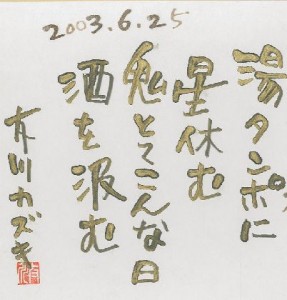 2003.6.25
湯タンポに
星休む
とてこんな日
酒を汲む